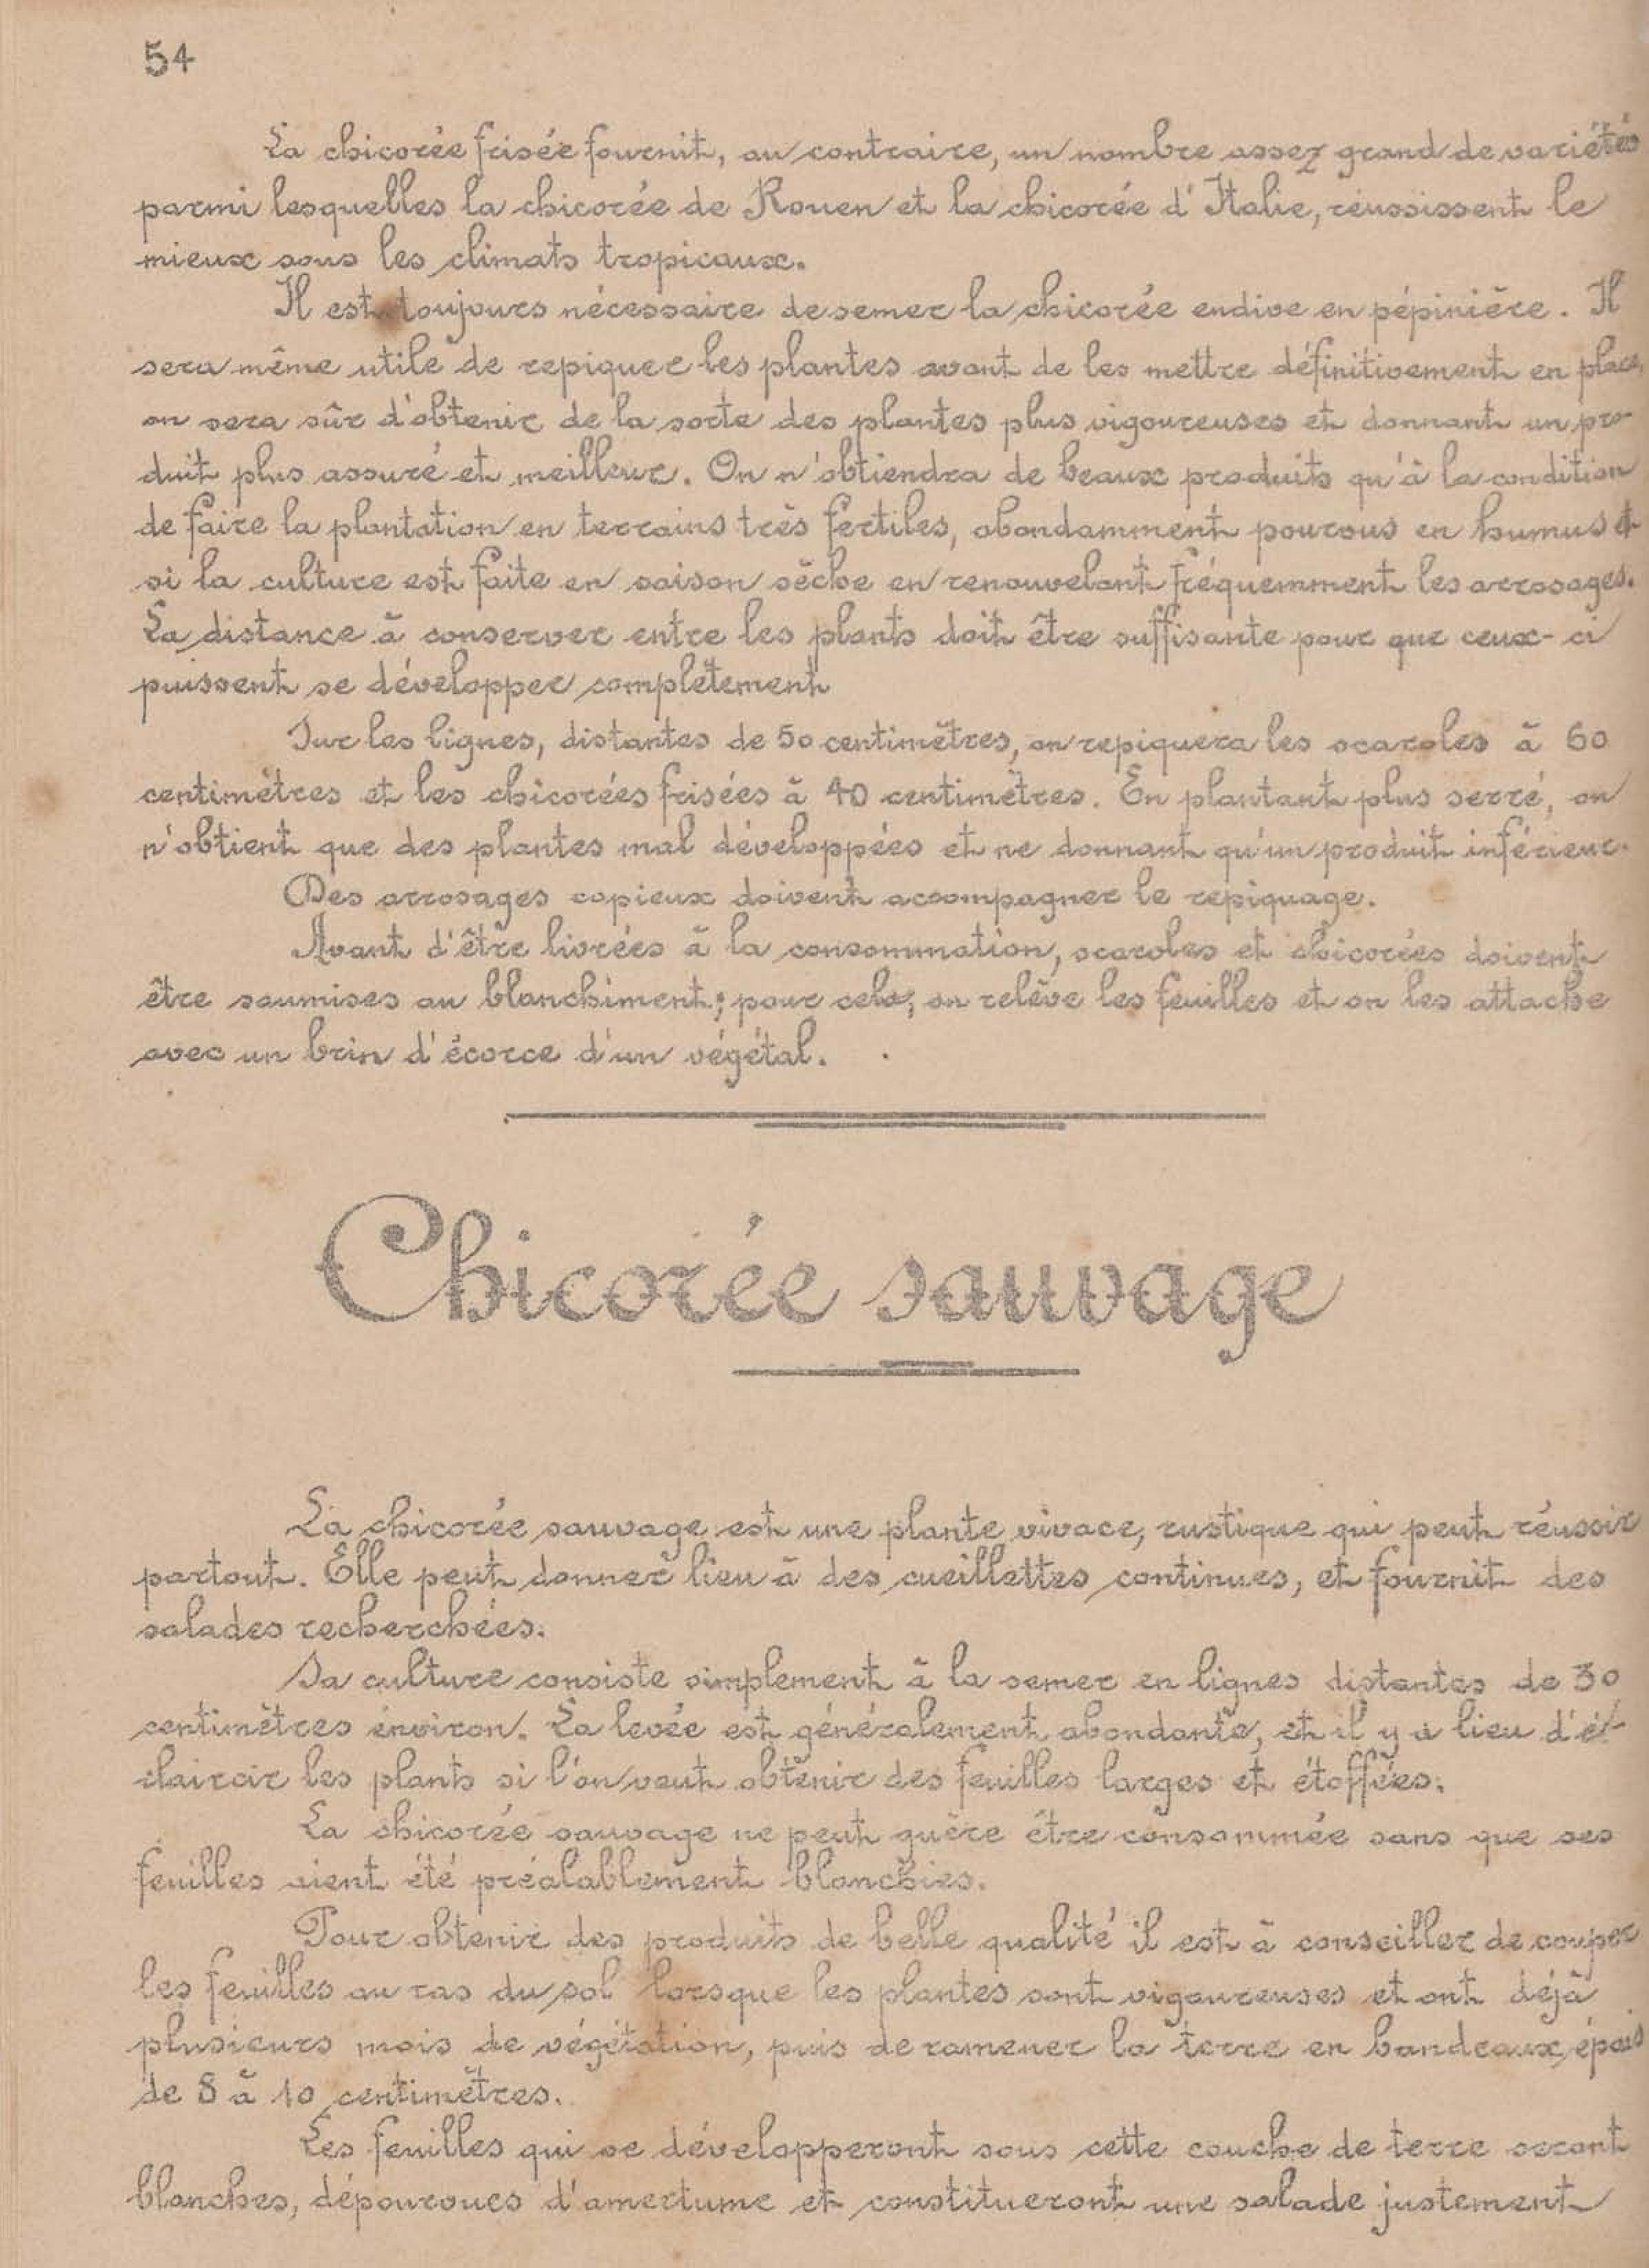 54
La chicorée frisée fournit, au contraire, un nombre assez grand de variétés
parmi lesquelles la chicorée de Rouen et la chicorée d'Italie, réussissent le
mieux sous les climats tropicaux.
Il est toujours nécessaire de semer la chicorée endive en pépinière. Il
sera même utile de repiquer les plantes avant de les mettre définitivement en place,
on sera sûr d'obtenir de la sorte des plantes plus vigoureuses et donnant un pro-
duit plus assuré et meilleur. On n'obtiendra de beaux produits qu'à la condition
de faire la plantation en terrains très fertiles, abondamment pourvus en humus et
si la culture est faite en saison sèche en renouvelant fréquemment les arrosages.
La distance à conserver entre les plants doit être suffisante pour que ceux-ci
puissent se développer complètement
Sur les lignes, distantes de 50 centimètres, on repiquera les scaroles à 60
centimètres et les chicorées frisées à 40 centimètres. En plantant plus serré, on
n'obtient que des plantes mal développées et ne donnant qu'un produit inférieur.
Des arrosages copieux doivent accompagner le repiquage.
Avant d'être livrées à la consommation, scaroles et chicorées doivent
être soumises au blanchiment; pour cela, on relève les feuilles et on les attache
avec un brin d'écorce d'un végétal.
Chicorée sauvage
La chicorée sauvage est une plante vivace, rustique qui peut réussir
partout. Elle peut donner lieu à des cueillettes continues, et fournit des
salades recherchées.
Sa culture consiste simplement à la semer en lignes distantes de 30
centimètres environ. La levée est généralement abondante, et il y a lieu d'é-
claircir les plants si l'on veut obtenir des feuilles larges et étoffées.
La chicorée sauvage ne peut guère être consommée sans que ses
feuilles aient été préalablement blanchies.
Pour obtenir des produits de belle qualité il est à conseiller de couper
les feuilles au ras du sol lorsque les plantes sont vigoureuses et ont déjà
plusieurs mois de végétation, puis de ramener la terre en bandeaux, épais
de 8 à 10 centimètres.
Les feuilles qui se développeront sous cette couche de terre seront
blanches, dépourvues d'amertume et constitueront une salade justement